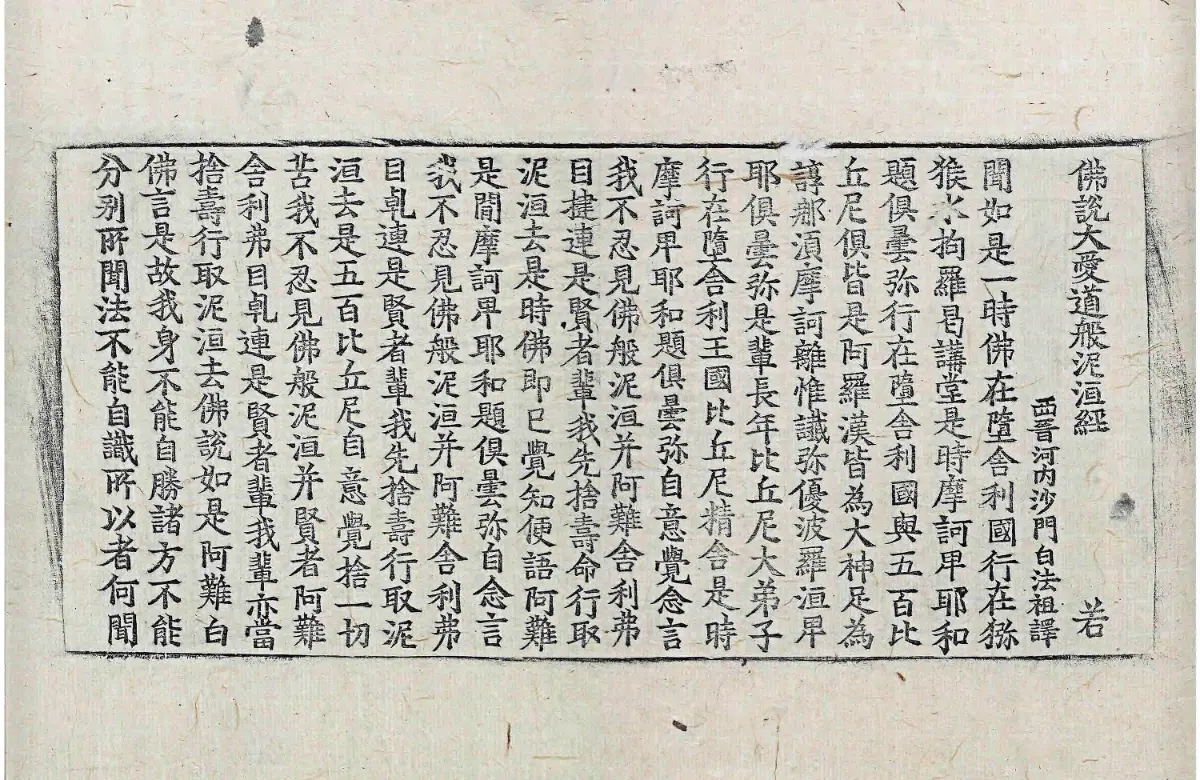 佛說大愛道般泥洹經　若
西晉河內沙門白法祖譯
聞如是一時佛在墮舍利國行在猕
猴水拘羅曷講堂是時摩訶卑耶和
題俱曇弥行在墮舍利國與五百比
丘尼俱皆是阿羅漢皆為大神足為
諄那湏摩訶離惟讖弥優波羅洹卑
耶俱曇弥是輩長年比丘尼大弟子
行在墮舍利王國比丘尼精舍是時
摩訶卑耶和題俱曇弥自意覺念言
我不忍見佛般泥洹并阿難舍利弗
目揵連是賢者輩我先捨壽命行取
泥洹去是時佛即已覺知便語阿難
是間摩訶卑耶和題俱曇弥自念言
我不忍見佛般泥洹并阿難舍利弗
目乹連是賢者輩我先捨壽行取泥
洹去是五百比丘尼自意覺捨一切
苦我不忍見佛般泥洹并賢者阿難
舍利弗目乹連是賢者輩我輩亦當
捨壽行取泥洹去佛說如是阿難白
佛言是故我身不能自勝諸方不能
分别所聞法不能自識所以者何聞